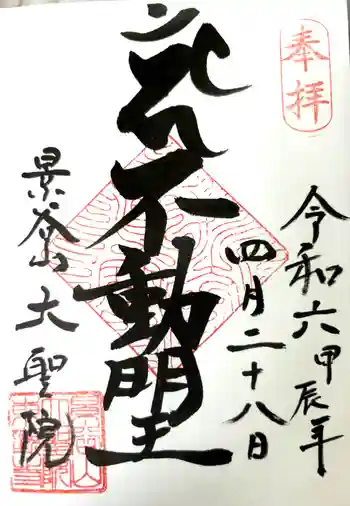 奉拝
令和六甲辰年
四月二十八日
不動明王
大聖院